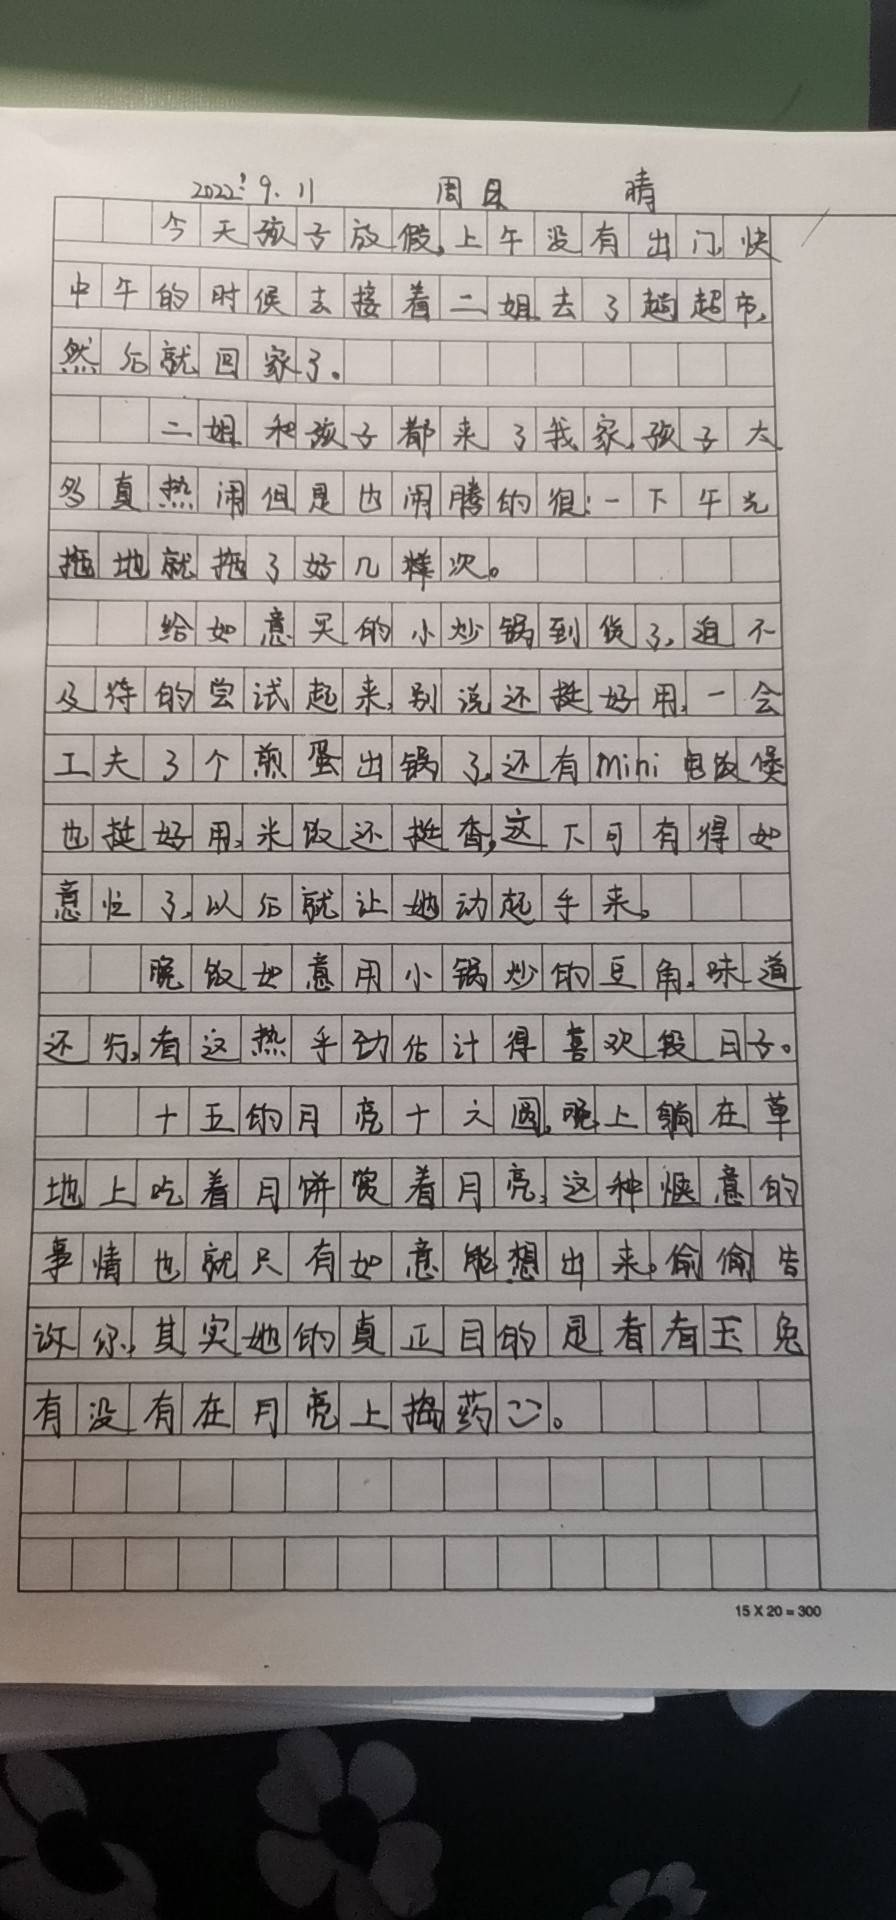 2022.9.11 周日 晴
今天孩子放假,上午没有出门,快
中午的时候去接着二姐去了趟超市,
然后就回家了。
二姐和孩子都来了我家,孩子太
多真热闹但是也闹腾的很!一下午光
拖地就拖了好几样次。
给如意买的小炒锅到货了,迫不
及待的尝试起来,别说还挺好用,一会
工夫了个煎蛋出锅了,还有mini电饭煲
也挺好用,米饭还挺香,这下可有得如
意忙了,以后就让她动起手来。
晚饭如意用小锅炒的豆角,味道
还行,看这热乎劲估计得喜欢段日子。
十五的月亮十六圆,晚上躺在草
地上吃着月饼赏着月亮,这种惬意的
事情也就只有如意能想出来。偷偷告
诉你,其实她的真正目的是看看玉兔
有没有在月亮上捣药。
15×20=300